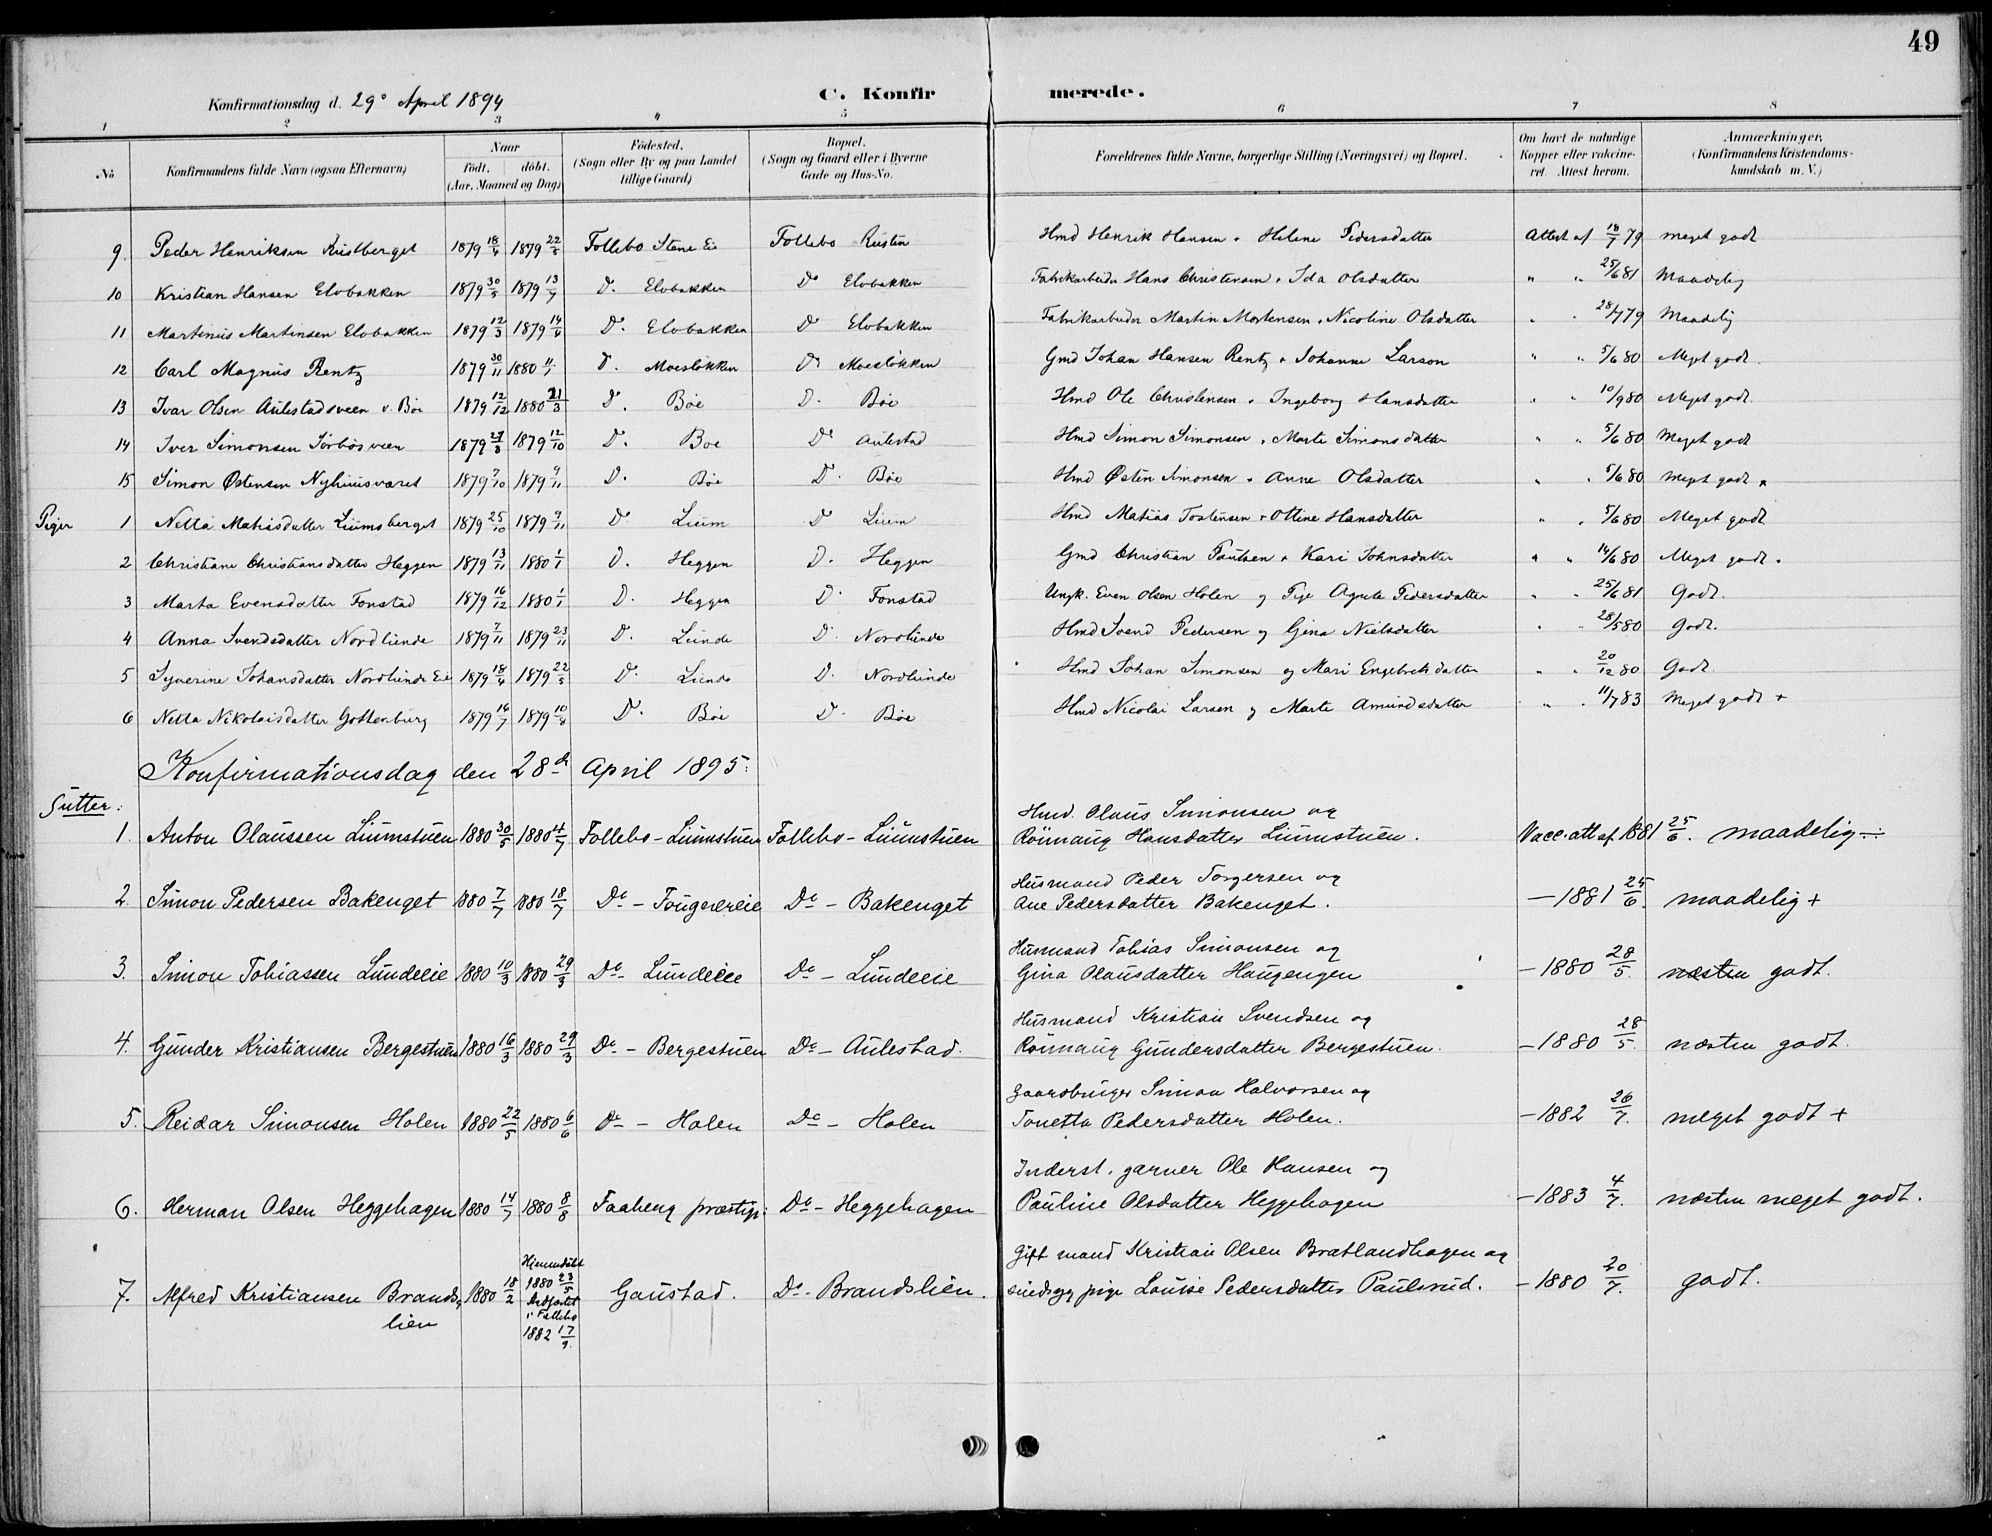 49
Konfirmationsdag d. 29° April 1894
C. Konfirmerede.
1 2 3 4 5 6 7 8
No
Konfirmandens fulde Navn (ogsaa Efternavn)
Naar
födt. döbt.
(Aar, Maaned og Dag)
Födested.
(Sogn eller By og paa Landet
tillige Gaard)
Bopæl.
(Sogn og Gaard eller i Byerne
Gade og Hus-No.
Forældrenes fulde Navne, borgerlige Stilling (Næringsvei) og Bopæl.
Om havt de naturlige
Kopper eller vakcine-
ret. Attest herom.
Anmærkninger.
(Konfirmandens Kristendoms-
kundskab m. V.)
9. Peder Henriksen Rustberget 1879 18/4 1879 22/5 Follebo Stene Ei Follebo Rusten Hmd Henrik Hansen + Helene Pedersdatter Attest af 18/7 79 meget godt
10 Kristian Hansen Elvbakken 1879 30/5 1879 13/7 D. Elvbakken D° Elvbakken Fabrikarbeider Hans Christensen + Ida Olsdatter " " 25/6 81 Maadelig
11 Martinus Martinsen Elvbakken 1879 12/3 1879 14/4 D. Elvbakken D° Elvbakken Fabrikarbeider Martin Mortensen + Nicoline Olsdatter " " 28/7 79 Maadelig
12 Carl Magnus Rentz 1879 30/11 1880 11/1 D. Moesløkken D° Moesløkken Gmd Johan Hansen Rentz + Johanne Larson " " 5/6 80 Meget godt.
13 Ivar Olsen Aulestadsveen v. Bøe 1879 12/12 1880 21/3 D. Bøe D. Bøe Hmd Ole Christensen + Ingeborg Hansdatter " " 10/9 80 Meget godt.
14 Iver Simonsen Sørbøsveen 1879 29/8 1879 12/10 D. Boe D° Aulestad Hmd Simon Simonsen + Marte Simonsdatter " " 5/6 80 Meget godt
15 Simon Østensen Nyhuusværet 1879 7/10 1879 9/11 D. Bøe D. Bøe Hmd Østen Simonsen + Anne Olsdatter " " 5/6 80 Meget godt
Piger 1 Netta Matiasdatter Liumsberget 1879 25/10 1879 9/11 D Lium D Lium Hmd Matias Tostensen + Ottine Hansdatter " " 5/6 80 Meget godt
2 Christiane Christiansdatter Heggen 1879 13/11 1880 1/1 D. Heggen D. Heggen Gmd Christian Paulsen + Kari Johnsdatter " " 14/6 80 Meget godt.
3 Marta Evensdatter Fonstad 1879 16/12 1880 1/1 D. Heggen D. Fonstad Ungk. Even Olsen Holen og Pige Agnete Pedersdatter " " 25/6 81 Godt.
4 Anna Svendsdatter Nordlunde 1879 7/11 1879 23/11 D. Lunde D. Nordlunde Hmd Svend Pedersen og Gina Nielsdatter " " 28/5 80 Godt.
5 Syverine Johansdatter Nordlunde Eie 1879 18/4 1879 22/5 D. Lunde D. Nordlunde Hmd Johan Simonsen og Mari Engebretsdatter " " 20/12 80 Godt
6 Netta Nikolaisdatter Gottenburg 1879 16/7 1879 10/ D. Bøe D. Bøe Hmd Nicolai Larsen og Marte Amundsdatter " " 11/7 83 Meget godt +
Konfirmationsdag den 28d April 1895.
Gutter:
1. Anton Olaussen Liumstuen 1880 30/5 1880 4/7 Follebo - Liumstuen Follebo - Liumstuen Hmd. Olaus Simonsen og
Rönnaug Hansdatter Liumstuen. Vacc. att af 1881 25/6. maadelig ÷
2. Simon Pedersen Bakenget 1880 7/7 1880 18/7 Do - Fougnereie Do - Bakenget Husmand Peder Torgersen og
Ane Pedersdatter Bakenget. — 1881 25/6. maadelig +
3. Simon Tobiassen Lundeeie 1880 10/3 1880 29/3 Do - Lundeeie Do - Lundeeie Husmand Tobias Simonsen og
Gina Olausdatter Haugengen - 1880 28/5. næsten godt.
4. Gunder Kristiansen Bergestuen 1880 16/3 1880 29/3 Do - Bergestuen Do - Aulestad. Husmand Kristian Svendsen og
Rönnaug Gundersdatter Bergestuen. - 1880 28/5. næsten godt.
5. Reidar Simonsen Holen 1880 22/5 1880 6/6 Do - Holen Do - Holen Gaardbruger Simon Halvorsen og
Tonetta Pedersdatter Holen. - 1882 26/7. meget godt +
6. Herman Olsen Heggehagen 1880 14/7 1880 8/8 Faaberg præstgj: Do - Heggehagen Inderst, garver Ole Hansen og
Pauline Olsdatter Heggehagen - 1883 4/7. næsten meget godt.
7. Alfred Kristiansen Brands-
lien 1880 18/2 Hjemmdöbt
1880 23/5
stadfæstet
i Follebo
1882 17/9. Gaustad. Do - Brandslien. Gift mand Kristian Olsen Bratlandhagen og
sindssyg pige Louise Pedersdatter Paulsrud. - 1880 20/7. godt.